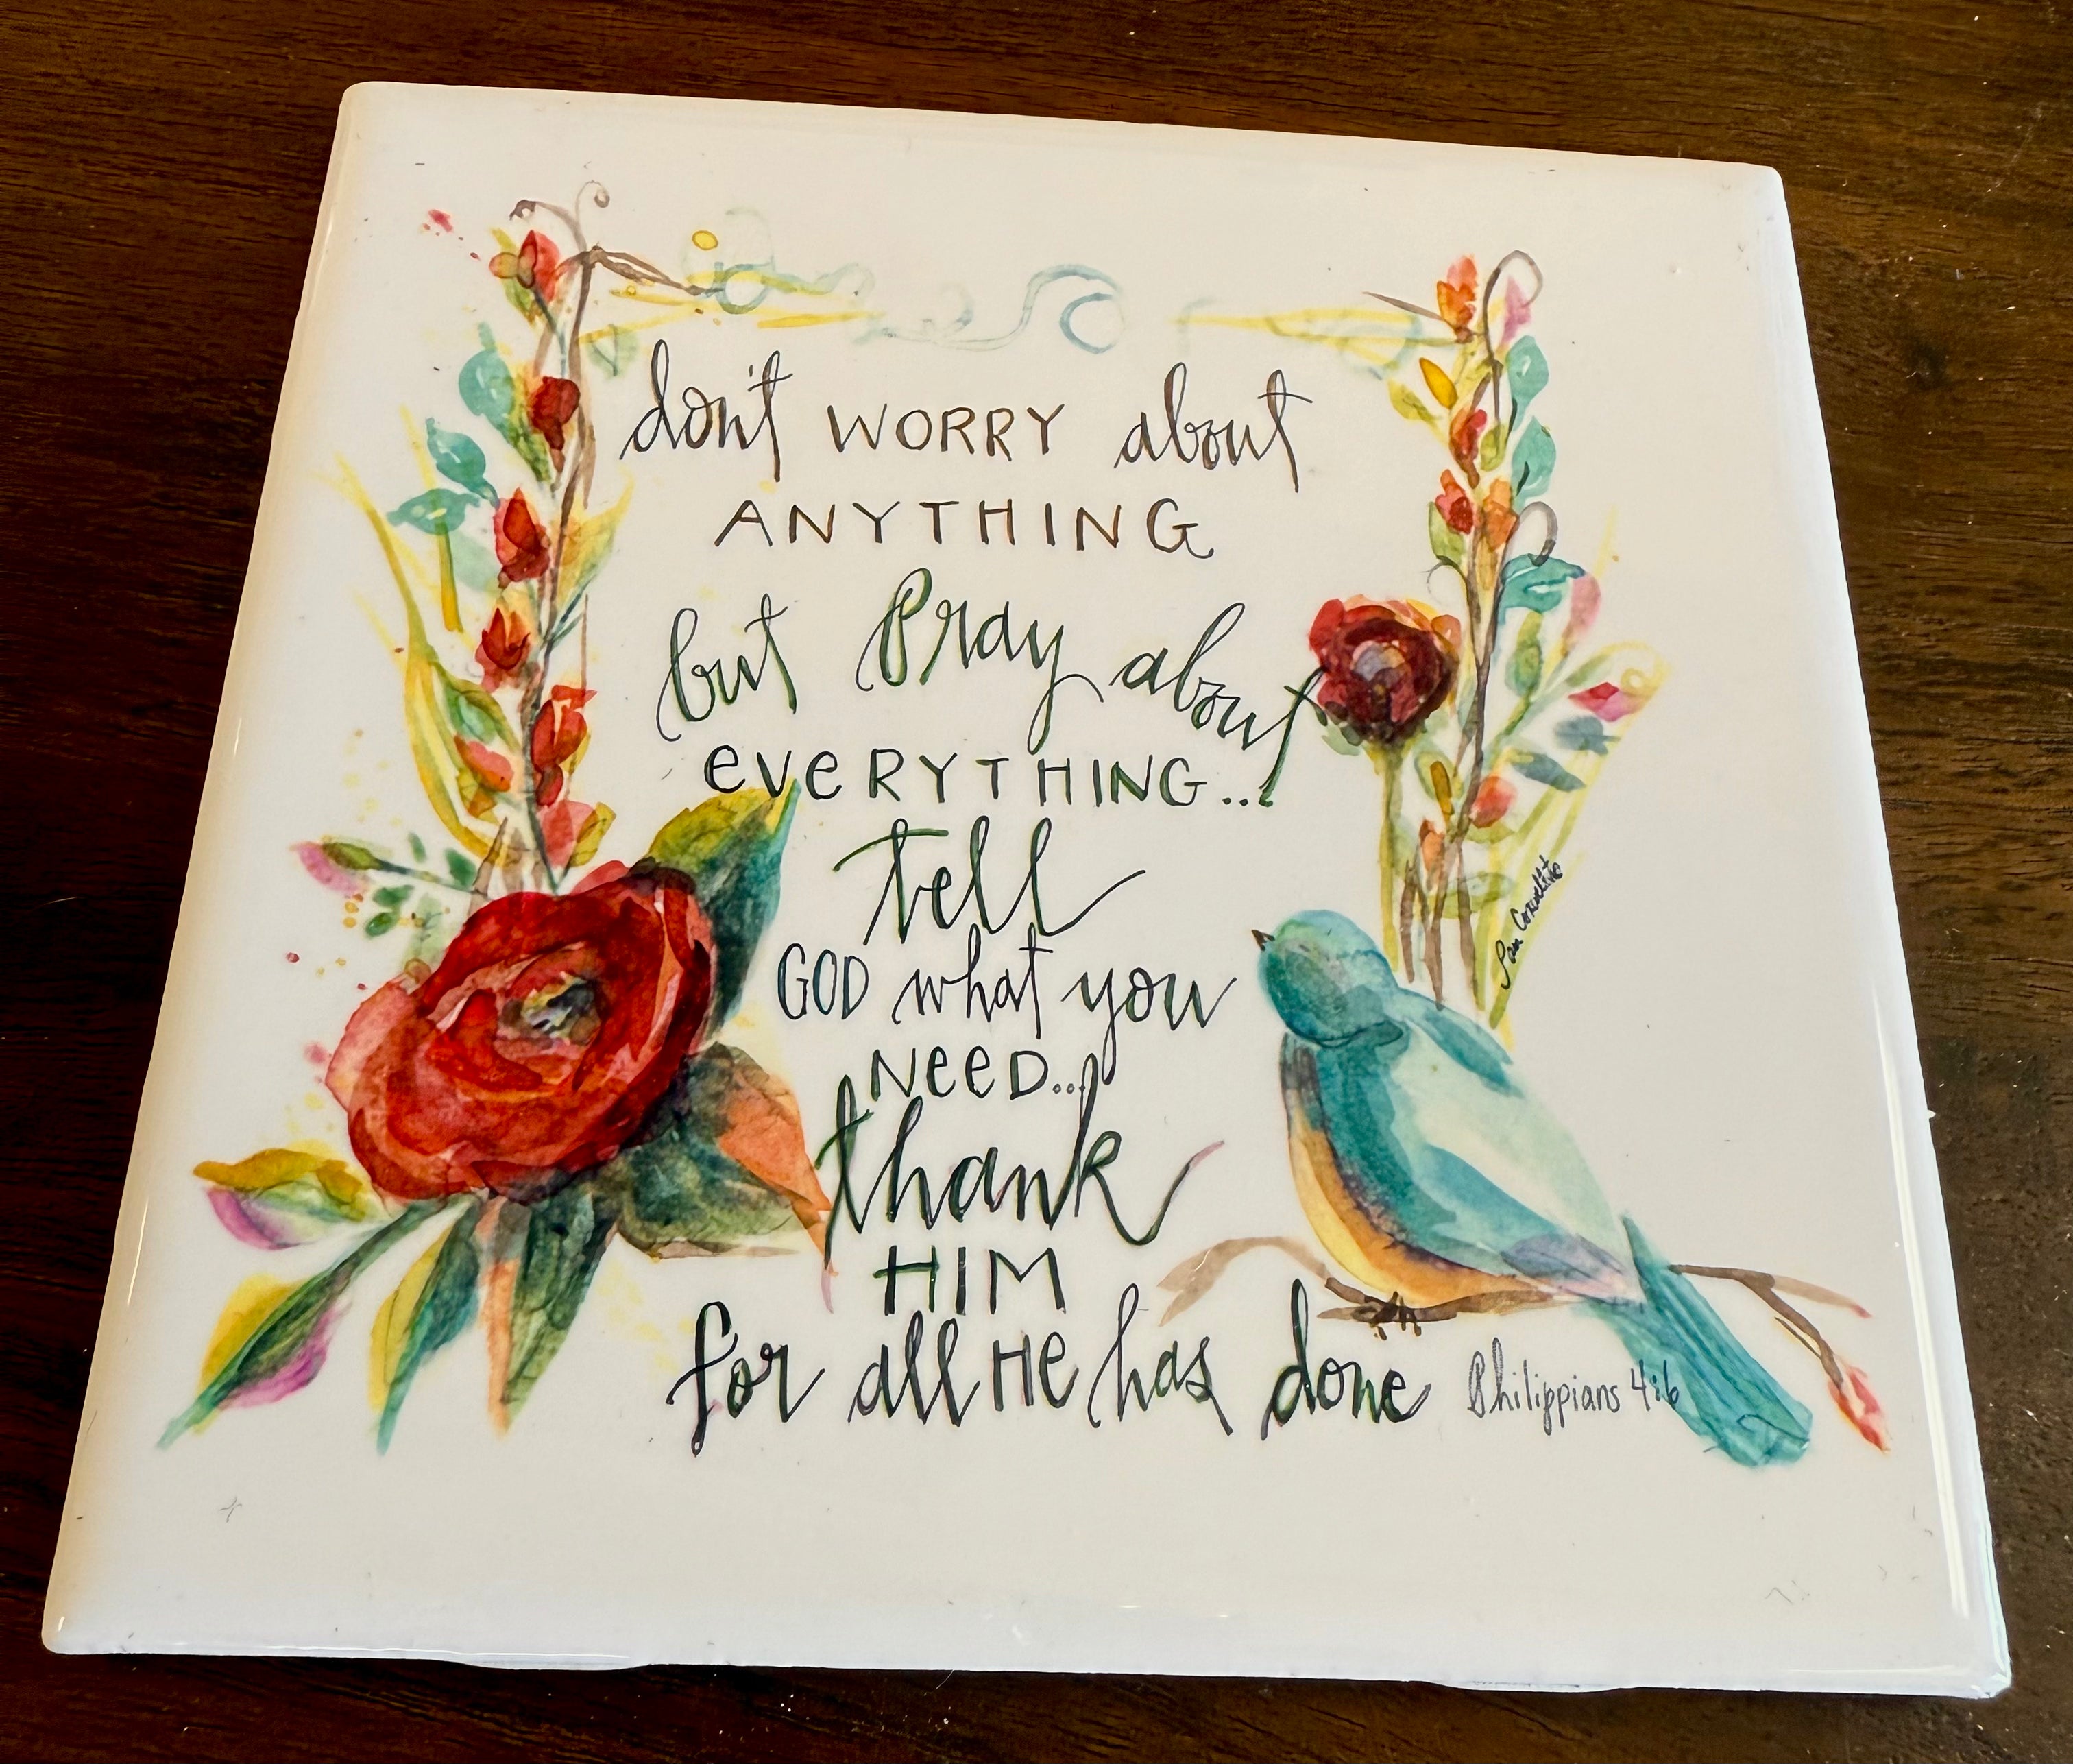 don't WORRY about
ANYTHING
but Pray about
eveRYTHING...
tell
GOD what you
NeeD...
thank
HIM
for all He has done
Philippians 4:6